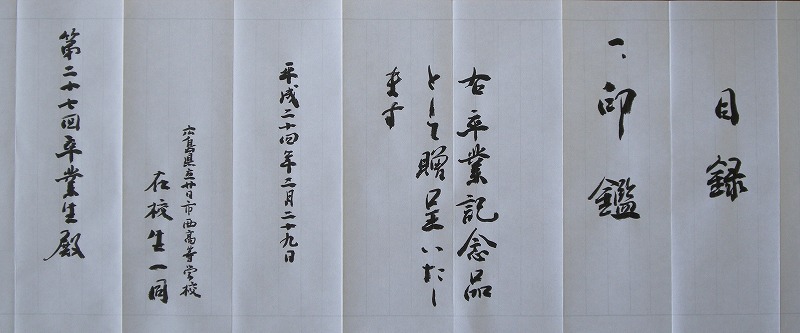 目録
一、印鑑
右卒業記念品
として贈呈いたし
ます
平成二十四年二月二十九日
広島県立廿日市西高等学校
在校生一同
第二十七回卒業生殿